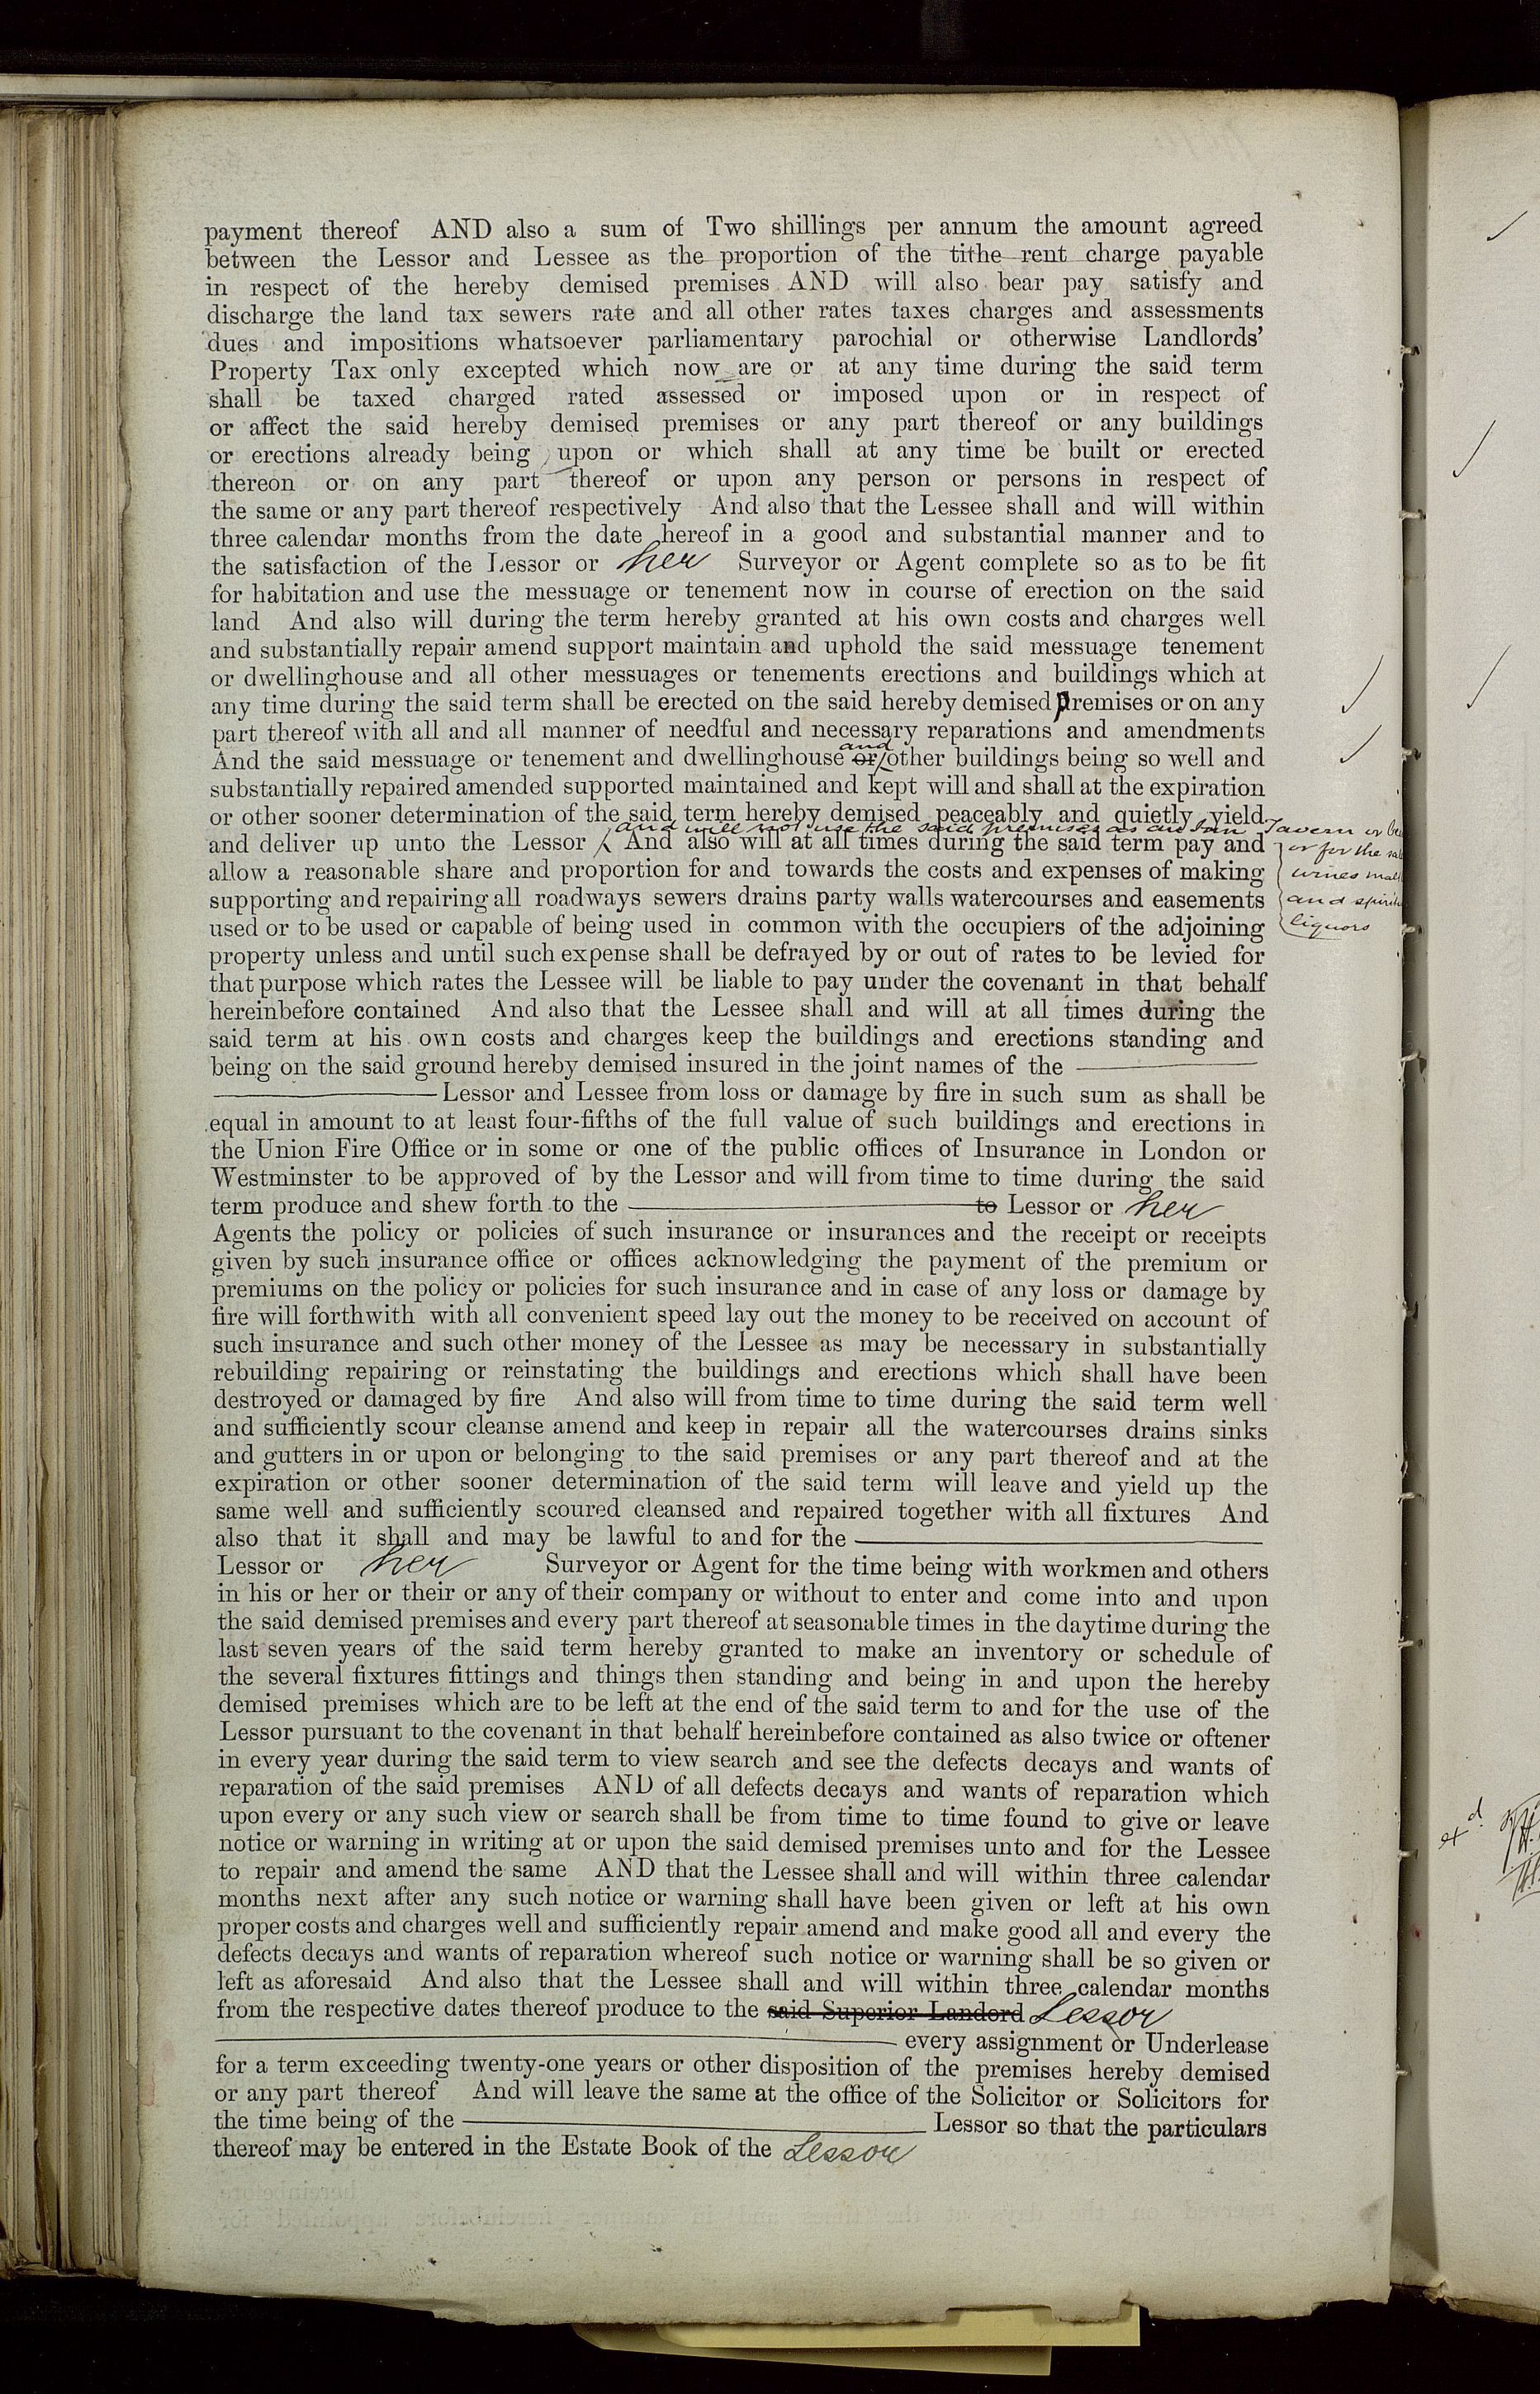 payment thereof AND also a sum of Two shillings per annum the amount agreed
between the Lessor and Lessee as the proportion of the tithe rent charge payable
in respect of the hereby demised premises AND will also bear pay satisfy and
discharge the land tax sewers rate and all other rates taxes charges and assessments
dues and impositions whatsoever parliamentary parochial or otherwise Landlords'
Property Tax only excepted which now are or at any time during the said term
shall be taxed charged rated assessed or imposed upon or in respect of
or affect the said hereby demised premises or any part thereof or any buildings
or erections already being upon or which shall at any time be built or erected
thereon or on any part thereof or upon any person or persons in respect of
the same or any part thereof respectively And also that the Lessee shall and will within
three calendar months from the date hereof in a good and substantial manner and to
the satisfaction of the Lessor or her Surveyor or Agent complete so as to be fit
for habitation and use the messuage or tenement now in course of erection on the said
land And also will during the term hereby granted at his own costs and charges well
and substantially repair amend support maintain and uphold the said messuage tenement
or dwellinghouse and all other messuages or tenements erections and buildings which at
any time during the said term shall be erected on the said hereby demised premises or on any
part thereof with all and all manner of needful and necessary reparations and amendments
and
And the said messuage or tenement and dwellinghouse or other buildings being so well and
substantially repaired amended supported maintained and kept will and shall at the expiration
or other sooner determination of the said term hereby demised peaceably and quietly yield
and will not use the said premises as an Inn Tavern or
and deliver up unto the Lessor And also will at all times during the said term pay and
or for the
allow a reasonable share and proportion for and towards the costs and expenses of making
wines
supporting and repairing all roadways sewers drains party walls watercourses and easements
and
used or to be used or capable of being used in common with the occupiers of the adjoining
liquors
property unless and until such expense shall be defrayed by or out of rates to be levied for
that purpose which rates the Lessee will be liable to pay under the covenant in that behalf
hereinbefore contained And also that the Lessee shall and will at all times during the
said term at his own costs and charges keep the buildings and erections standing and
being on the said ground hereby demised insured in the joint names of the
Lessor and Lessee from loss or damage by fire in such sum as shall be
equal in amount to at least four-fifths of the full value of such buildings and erections in
the Union Fire Office or in some or one of the public offices of Insurance in London or
Westminster to be approved of by the Lessor and will from time to time during the said
term produce and shew forth to the to Lessor or her
Agents the policy or policies of such insurance or insurances and the receipt or receipts
given by such insurance office or offices acknowledging the payment of the premium or
premiums on the policy or policies for such insurance and in case of any loss or damage by
fire will forthwith with all convenient speed lay out the money to be received on account of
such insurance and such other money of the Lessee as may be necessary in substantially
rebuilding repairing or reinstating the buildings and erections which shall have been
destroyed or damaged by fire And also will from time to time during the said term well
and sufficiently scour cleanse amend and keep in repair all the watercourses drains sinks
and gutters in or upon or belonging to the said premises or any part thereof and at the
expiration or other sooner determination of the said term will leave and yield up the
same well and sufficiently scoured cleansed and repaired together with all fixtures And
also that it shall and may be lawful to and for the
Lessor or her Surveyor or Agent for the time being with workmen and others
in his or her or their or any of their company or without to enter and come into and upon
the said demised premises and every part thereof at seasonable times in the daytime during the
last seven years of the said term hereby granted to make an inventory or schedule of
the several fixtures fittings and things then standing and being in and upon the hereby
demised premises which are to be left at the end of the said term to and for the use of the
Lessor pursuant to the covenant in that behalf hereinbefore contained as also twice or oftener
in every year during the said term to view search and see the defects decays and wants of
reparation of the said premises AND of all defects decays and wants of reparation which
upon every or any such view or search shall be from time to time found to give or leave
notice or warning in writing at or upon the said demised premises unto and for the Lessee
to repair and amend the same AND that the Lessee shall and will within three calendar
months next after any such notice or warning shall have been given or left at his own
proper costs and charges well and sufficiently repair amend and make good all and every the
defects decays and wants of reparation whereof such notice or warning shall be so given or
left as aforesaid And also that the Lessee shall and will within three calendar months
from the respective dates thereof produce to the said Superior Landord Lessor
every assignment or Underlease
for a term exceeding twenty-one years or other disposition of the premises hereby demised
or any part thereof And will leave the same at the office of the Solicitor or Solicitors for
the time being of the Lessor so that the particulars
thereof may be entered in the Estate Book of the Lessor